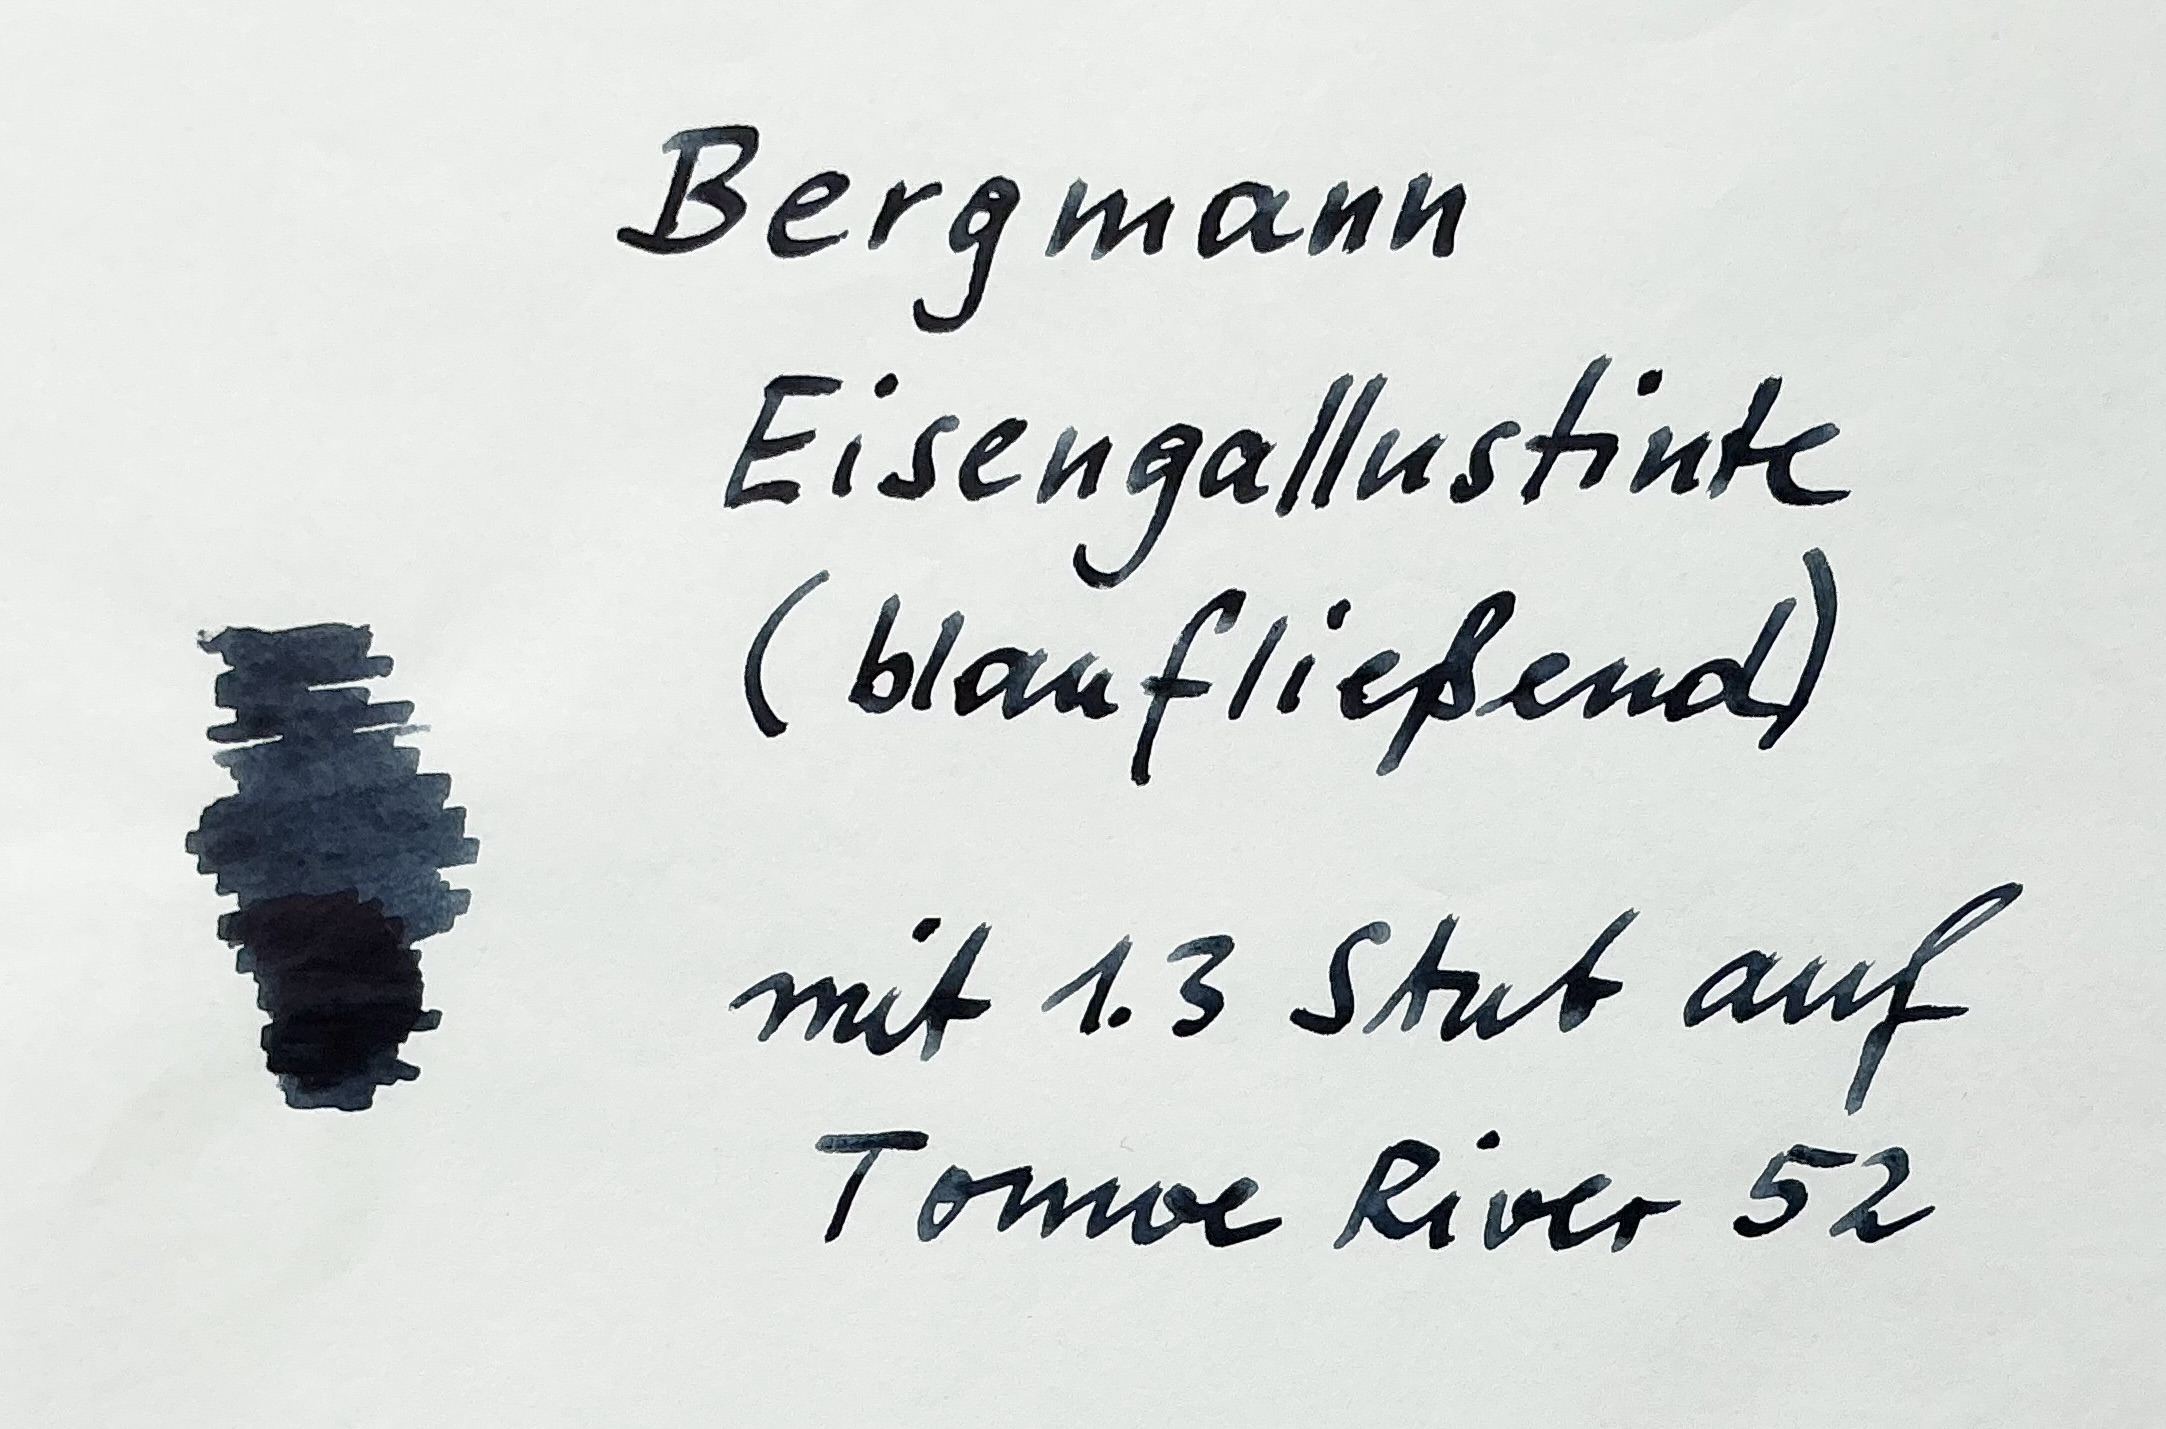 Bergmann
Eisengallustinte
(blaufließend)
mit 1.3 Stub auf
Tomoe River 52